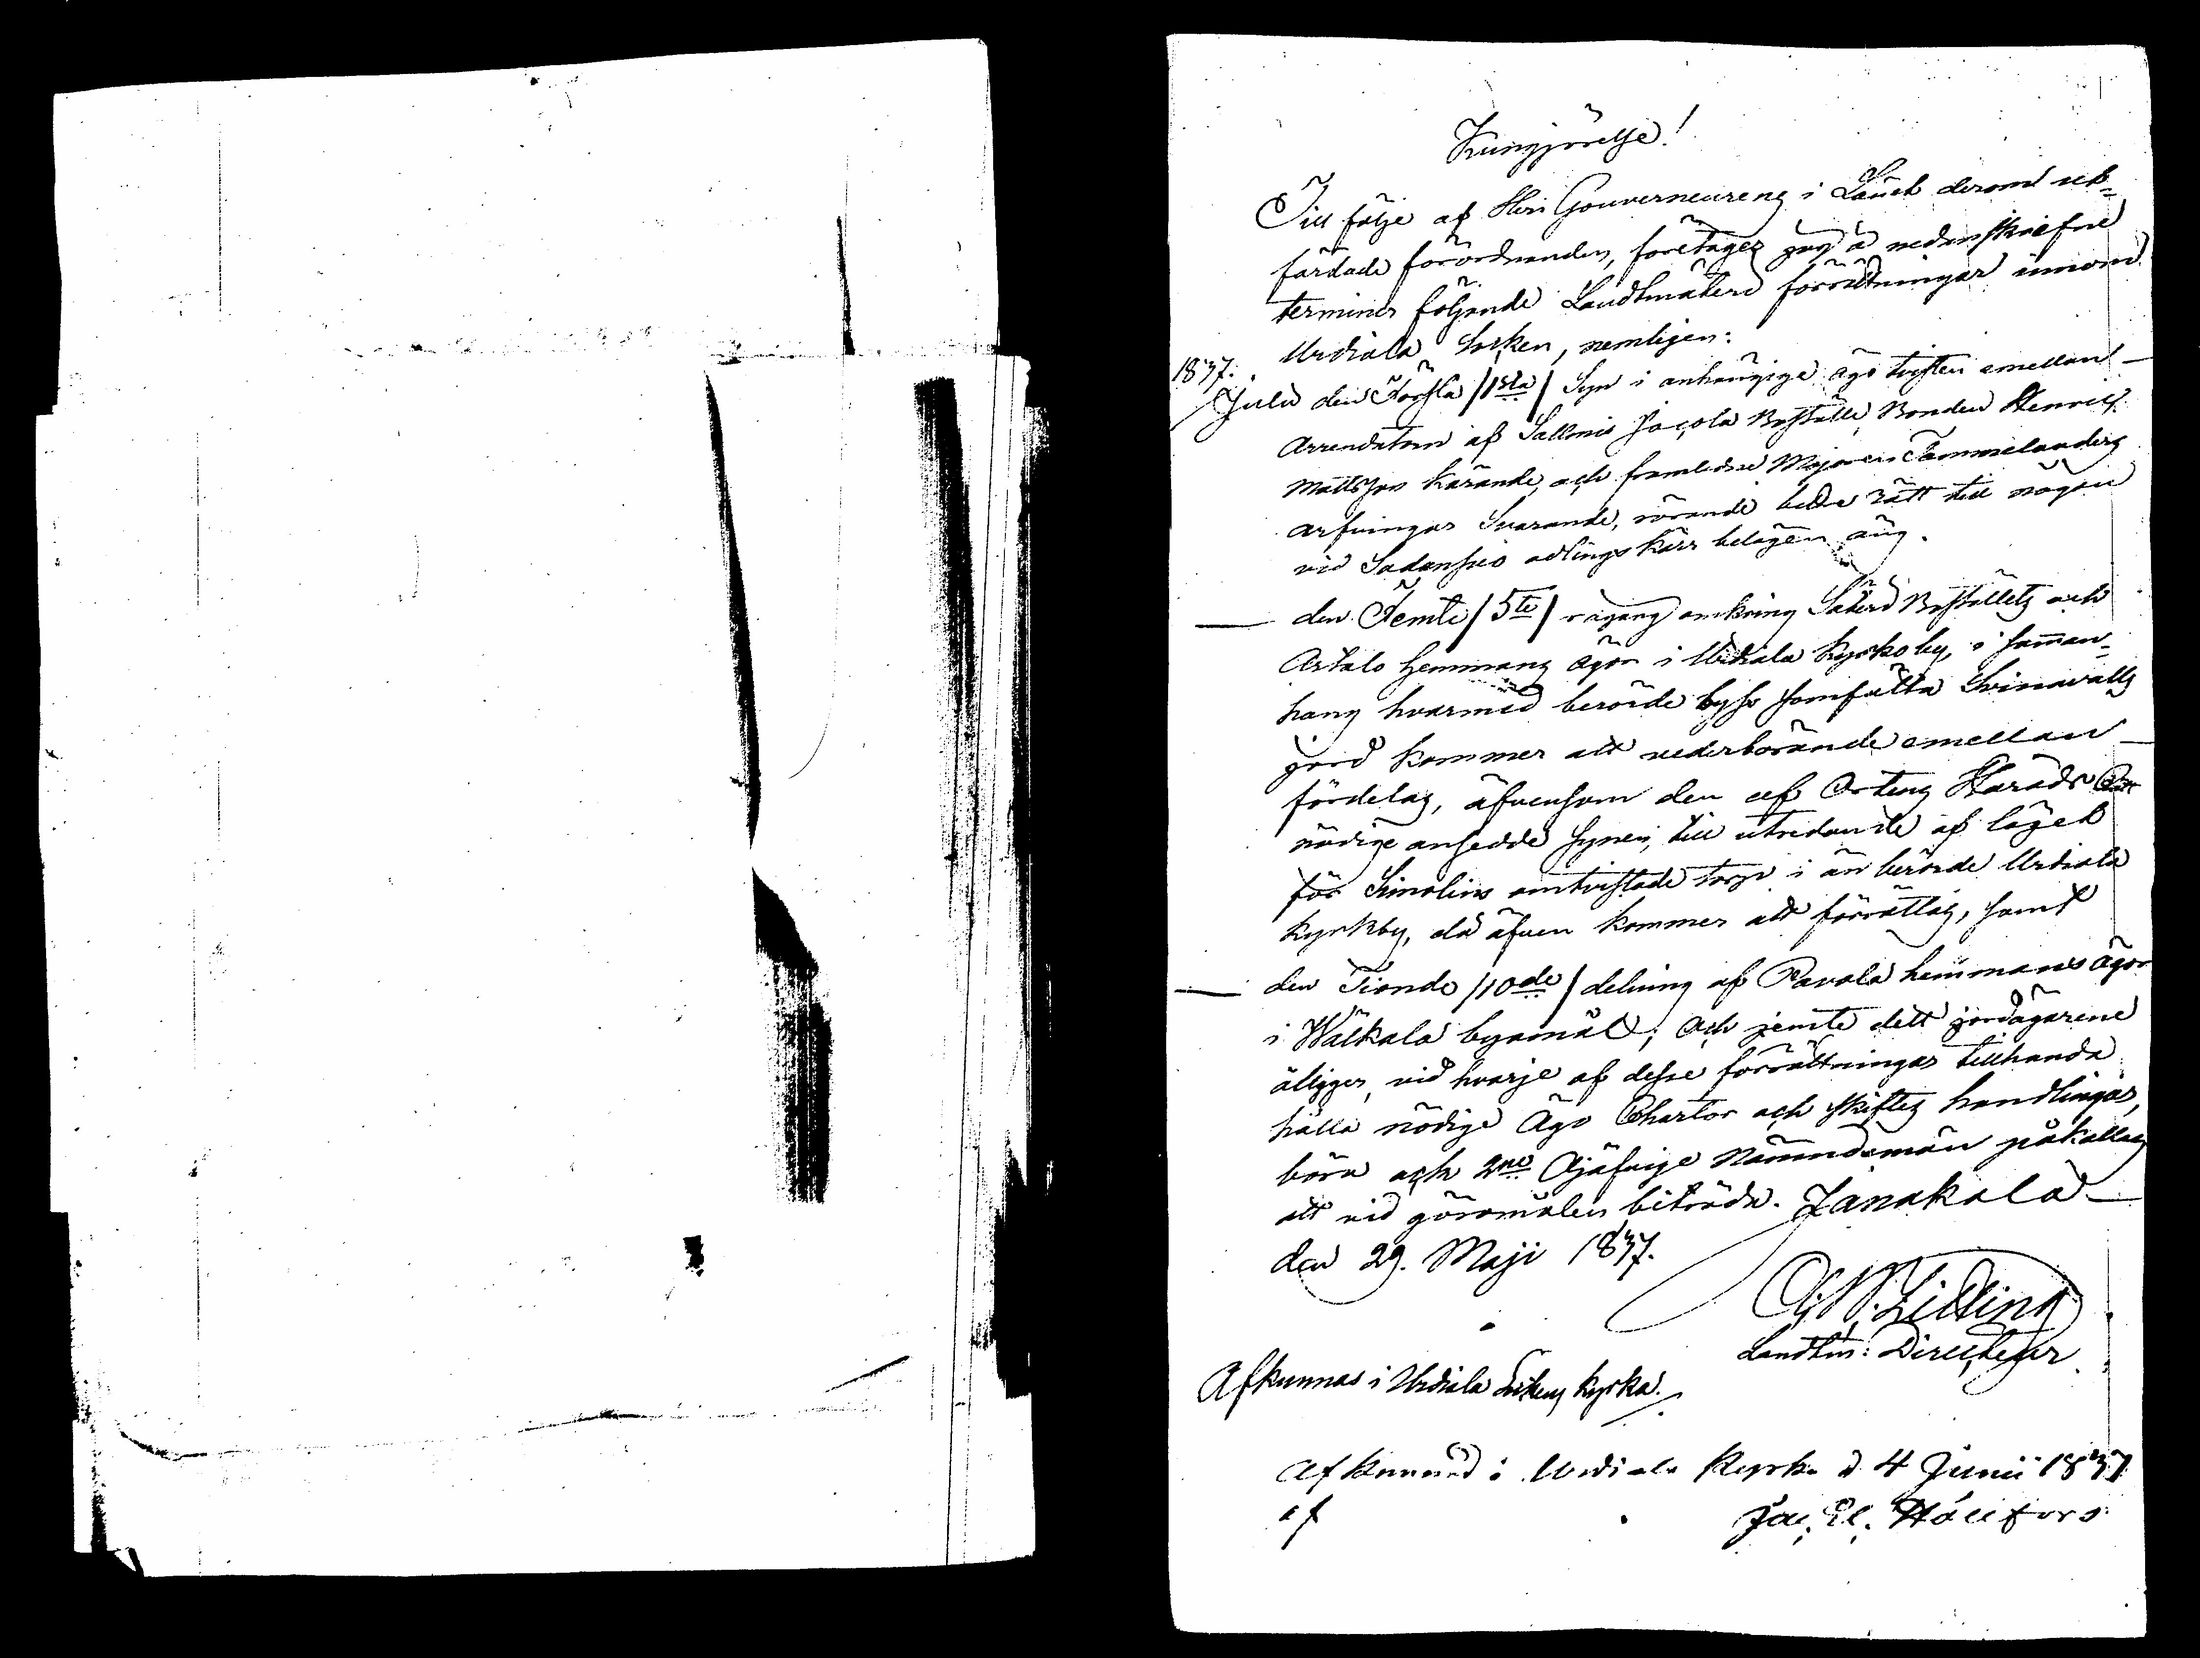 Kungjörelse!
Till följe af Herr Gouverneurens i Länet derom ut-
färdade förordnanden, företager jag å nedanskrefne
terminer följande Landtmäteri förrättningar innom
Urdiala Socken, nemligen:
1837.
Julii den Första /1sta/ Syn i anhängige ägo tvisten emellan
Arrendatorn af Sallmis Jacola Boställe, Bonden Henric
Mattsson Kärande, och framledne Majoren Tammelanders
arfvingar Svarande, rörande bättre rätt till någon
vid Sadansuo odlings kärr belägen äng.
den Femte /5te/ rågång omkring Säteri Boställets och
Artalo hemmans ägor i Urdiala Kyrkoby, i samman-
hang hvarmed berörde bys samfälta Svinavalls
jord kommer att vederbörande emellan
fördelas, äfvensom den af Ortens Härads Rätt
nödige ansedde synen, till utredande af läget
för Simolins omtvistade torp i än berörde Urdiala
Kyrkby, då äfven kommer att förrättas, samt
den Tionde /10de/ delning af Pavola hemmans ägor
i Walkala byamål; och jemte dett jordägarene
åligger, vid hvarje af desse förrättningar tillhanda
hålla nödige Ägo Chartor och skiftes handlingar,
böra och 2ne Ojäfvige Nämndemän påkallas
att vid göromålen biträda. Janakala
den 29. Maji 1837.
Lidling
Landtm: Directeur
Afkunnas i Urdiala Sockens kyrka.
Afkunnad i Urdiala Kyrka d 4 Junii 1837
af Jac. El. Hällfors